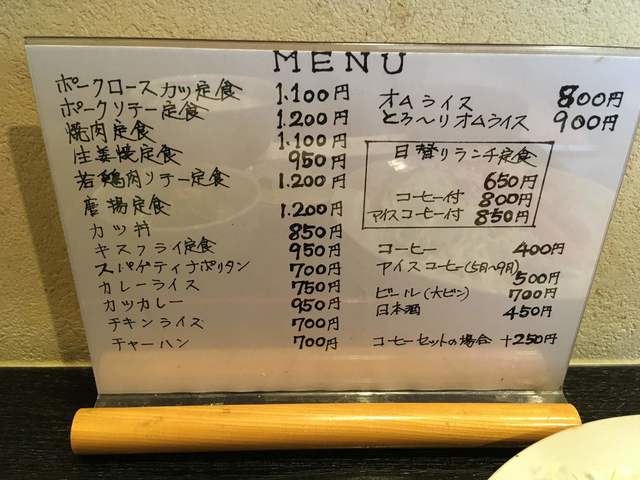 MENU
ポークロースカツ定食 1.100円
ポークソテー定食 1.200円
焼肉定食 1.100円
生姜焼定食 950円
若鶏肉ソテー定食 1.200円
唐揚定食 1.200円
カツ丼 850円
キスフライ定食 950円
スパゲティナポリタン 700円
カレーライス 750円
カツカレー 950円
チキンライス 700円
チャーハン 700円
オムライス 800円
とろ〜りオムライス 900円
日替りランチ定食
650円
コーヒー付 800円
アイスコーヒー付 850円
コーヒー 400円
アイスコーヒー(5月〜9月)
500円
ビール(大ビン) 700円
日本酒 450円
コーヒーセットの場合 +250円